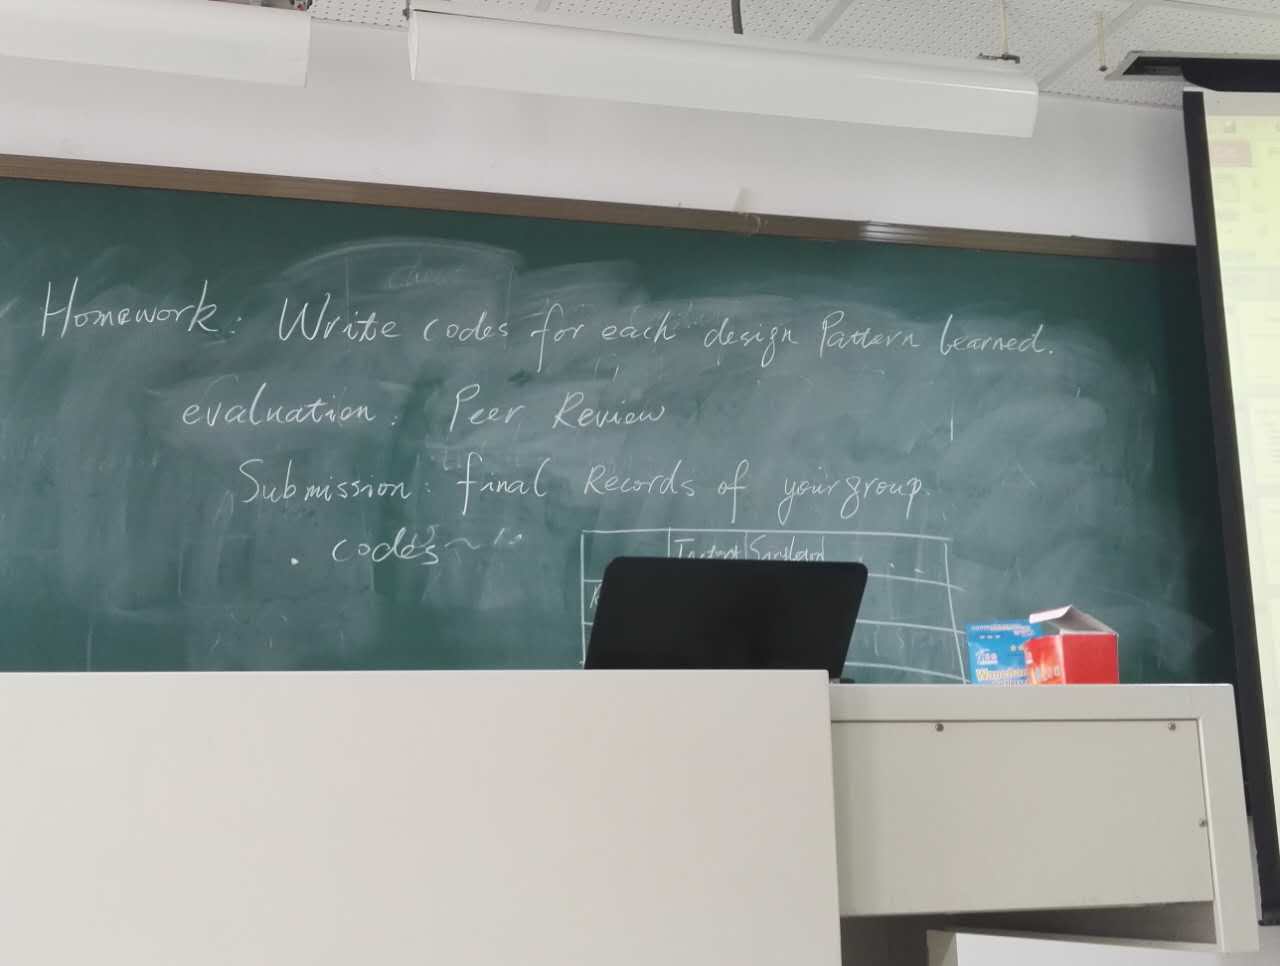 Homework: Write codes for each design Pattern learned.
evaluation: Peer Review
Submission: final Records of your group.
. codes